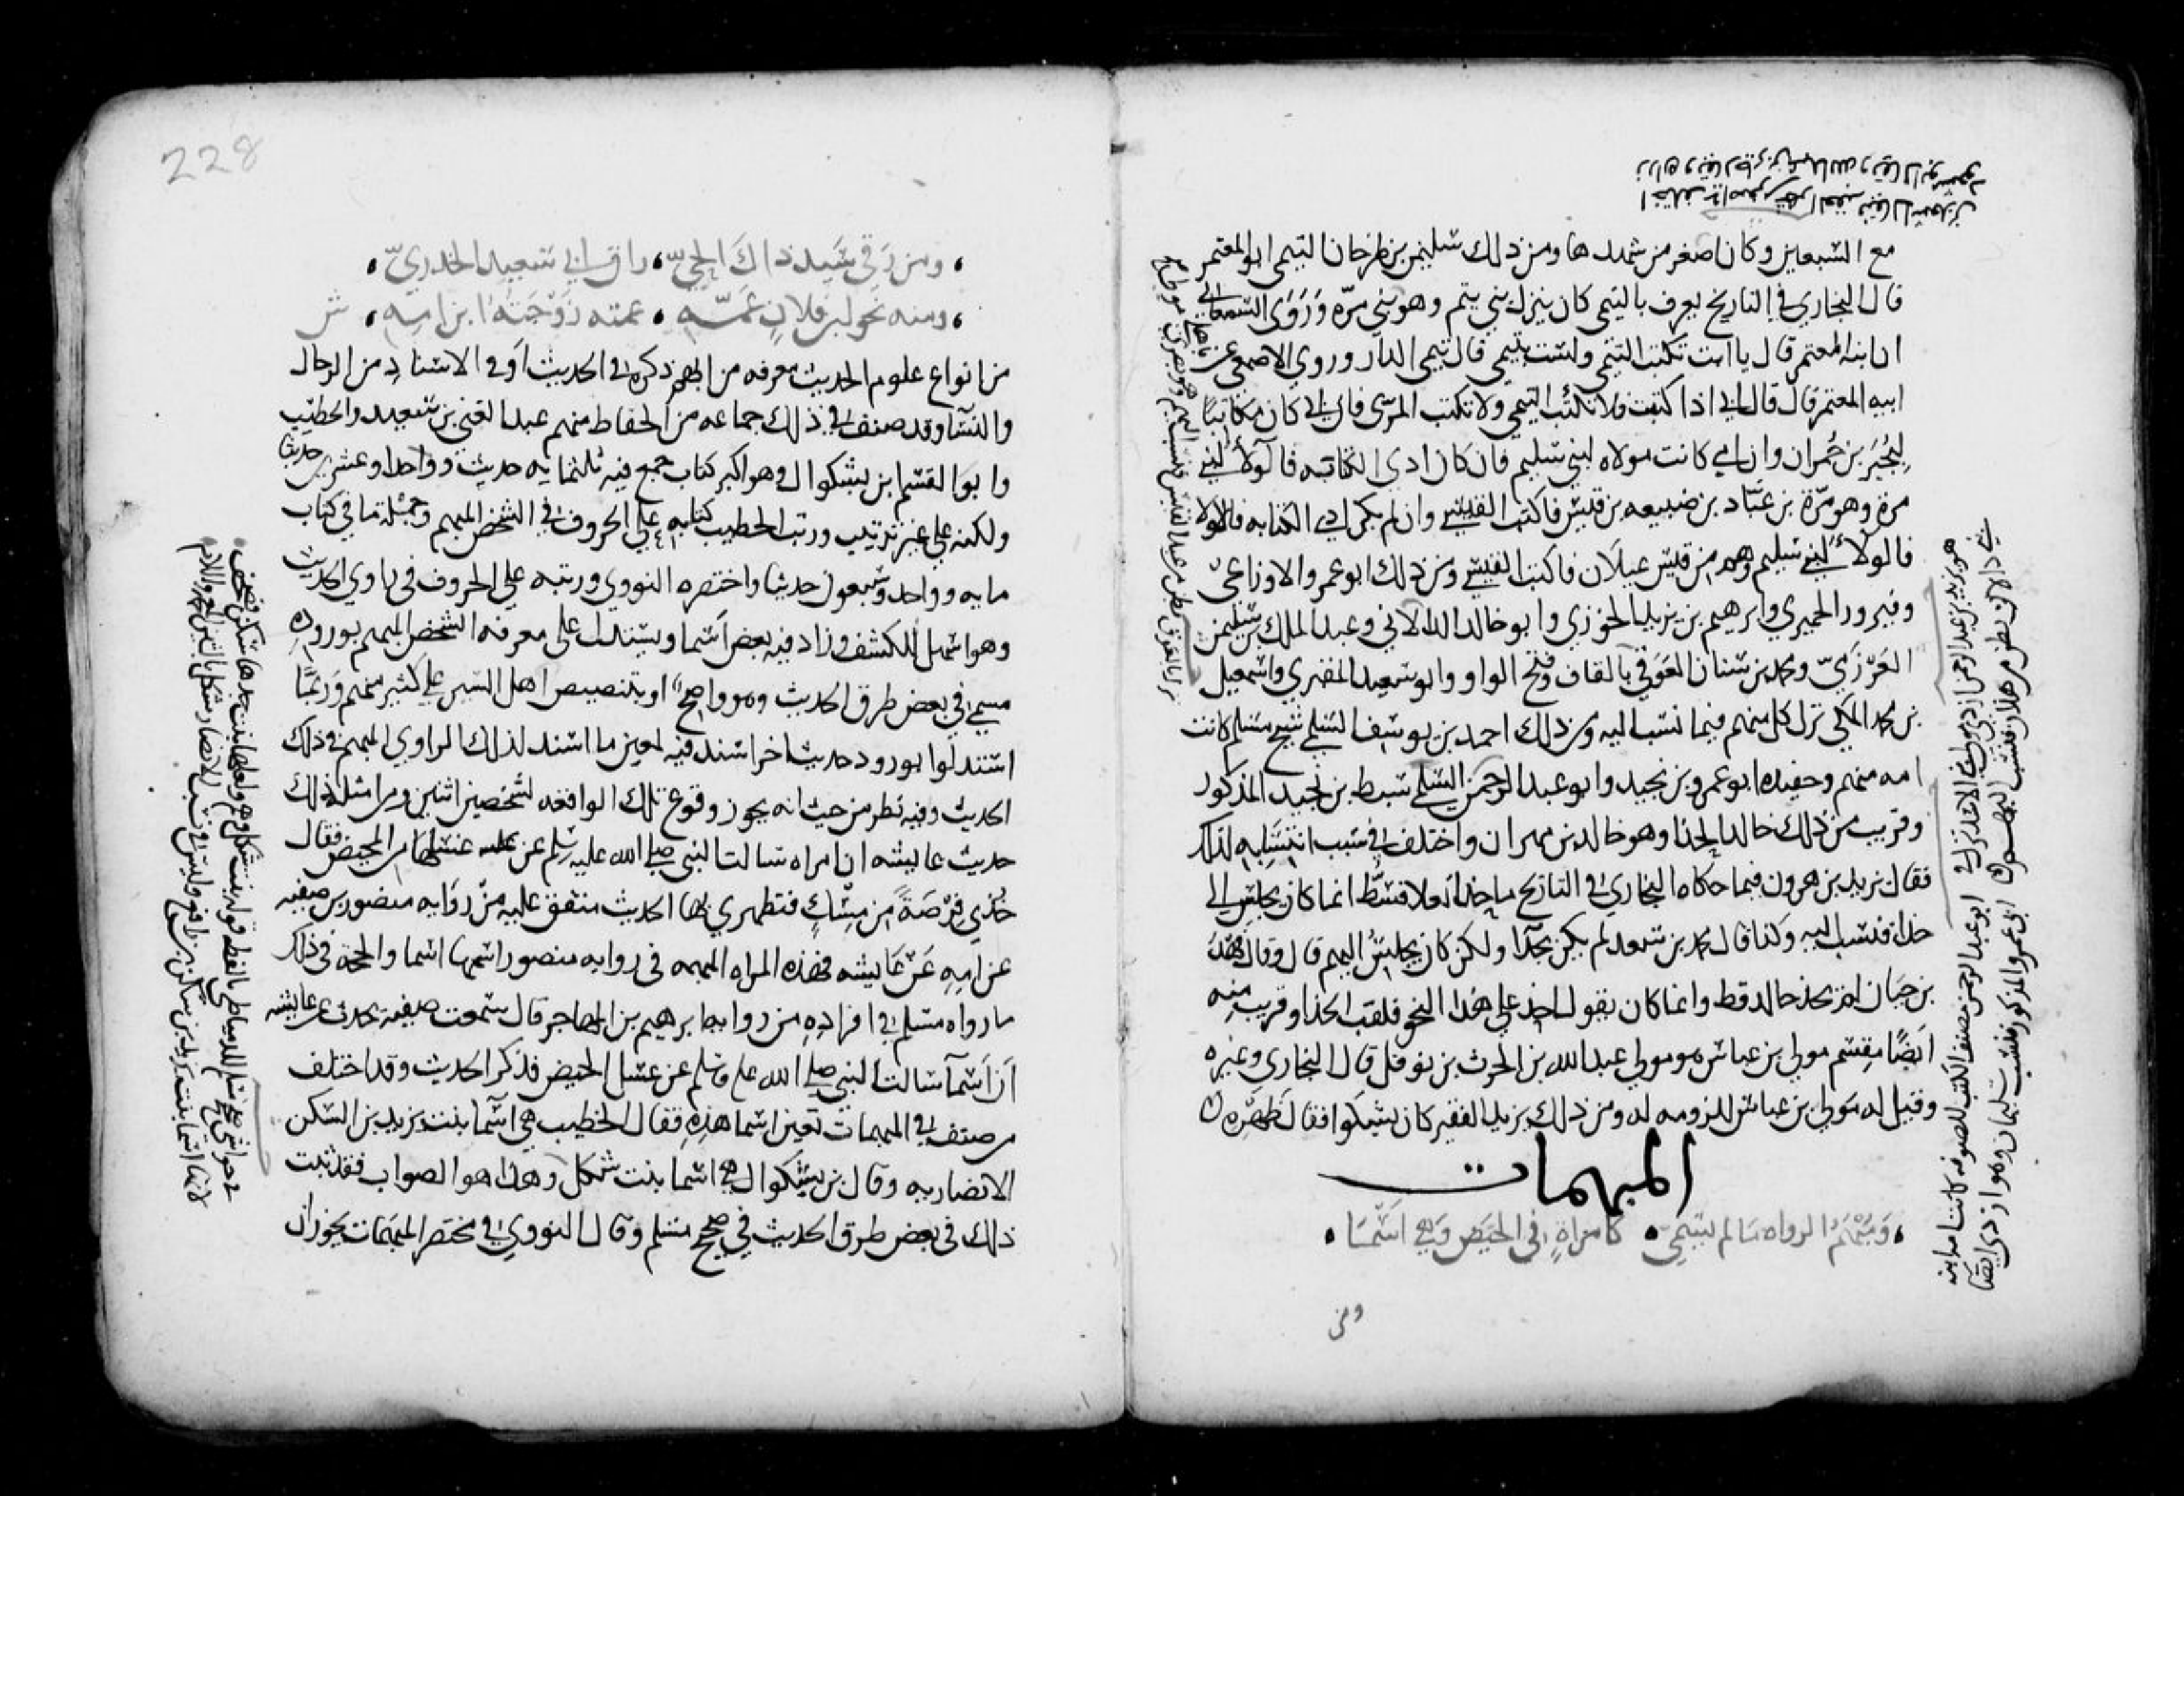 مع السبعين وكان اصغر من شهدها ومن ذلك سليمن بن طرخان التيمي ابو المعتمر
قال البخاري في التاريخ يعرف بالتيمي كان ينزل بني تيم وهو بني مرّه وَرَوَى السمعاني
ان ابنه المعتمر قال يا ابت تكتب التيمي ولست بتيمي قال تيمي الدار وروي الاصمعي عن
ابيه المعتمر قال قال لي اذا كتبت فلا تكتب التيمي ولا تكتب المرّي فان ابي كان مكاتبًا
لبُجَير بن حُمران وان امي كانت مولاه لبني سليم فان كان ادى الكتابه فالولأ لبني
مرة وهو مرّة بن عَبّاد بن ضبيعه بن قيس فاكتب القيسي وان لم يكن ادي الكتابه فالولا
فالولأ لبني سليم وهم من قيس عيلان فاكتب القيسي ومن ذلك ابو عمرو الاوزاعيّ
وفيروز الحميري وابرهيم بن يزيد الخوزي وابو خالد الدالاني وعبد الملك بن سليمن
العَرْزَميّ ومحمد بن سنان العَوَقي بالقاف وفتح الواو وابو سعيد المقبري واسمعيل
بن محمد المكي نزل كل منهم فيما نسب اليه ومن ذلك احمد بن يوسف السلمي شيخ مسلم كانت
امه منهم وحفيده ابو عمرو بن نجيد وابو عبد الرحمن السلمي سبط بن نجيد المذكور
وقريب من ذلك خالد الحذا وهو خالد بن مهران واختلف في سبب انتسابه لذلك
فقال يزيد بن هرون فيما حكاه البخاري في التاريخ ما حذا نعلا قط انما كان يجلس الى
حذا فنسب اليه وكذا قال محمد بن سعد لم يكن بحذّا ولكن كان يجلس اليهم قال وقال فهد
بن حيان لم يحذ خالد قط وانما كان يقول احذ على هذا النحو فلقب الحذا وقريب منه
ايضًا مِقسَم مولى بن عباس هو مولى عبد الله بن الحرث بن نوفل قال البخاري وغيره
وقيل له مَولى بن عباس للزومه له ومن ذلك يزيد الفقير كان يشكوا فقار ظهره
المبهمات
وَمُبْهَمُ الرواه مَا لم يُسَمّى كامراةٍ في الحيض وَهي اسْمَا
ومن
228
ومن رَقى سَيد ذاكَ الحيّ راق ابي سَعِيد الخدريّ
ومنه نحو ابن فلان عَمّه عمته زَوْجَتُه ابن امه ش
من انواع علوم الحديث معرفه من ابهم ذكره في الحديث اَو في الاسناد من الرجال
والنسآ وقد صنف في ذلك جماعه من الحفاط منهم عبد الغني بن سعيد والخطيب
وابو القسم ابن بشكوال وهو اكبر كتاب جمع فيه ثلثمايه حديث وواحدا وعشرين حديثا
ولكنه على غير ترتيب ورتب الخطيب كتابه على الحروف في الشخص المبهم وجُمْلة ما في كتاب
مايه وواحد وسبعون حديثا واختصره النووي ورتبه على الحروف في راوي الحديث
وهو اسهل للكشف وزاد فيه بعض اسما ويستدل على معرفه الشخص المبهم بوروده
مسمى في بعض طرق الحديث وهو واضح او بتنصيص اهل السير على كثير منهم وَربّما
استدلوا بورود حديث اخر اسند فيه لمعين ما اسند لذلك الراوي المبهم في ذلك
الحديث وفيه نظر من حيث انه يجوز وقوع تلك الواقعه لشخصين اثنين ومن امثلة ذلك
حديث عايشه ان امراه سالت النبي صلى الله عليه وسلم عن غسلها من الحيض فقال
خُذي فِرْصَةً من مِسْكٍ فتطهري بها الحديث متفق عليه من رِوَايه منصور بن صفيه
عن امِهِ عَنْ عَايشه فهذه المراه المبهمه في روايه منصور اسمها اسما والحجة في ذلك
ما رواه مسلم في افرادِه من روايه ابرهيم بن المهاجر قال سمعت صفيه تحدث عن عايشه
اَنّ اَسمآ سالت النبي صلى الله علم وسلم عن غسل الحيض فذكر الحديث وقد اختلف
من صنف في المبهمات تعين اسما هذِهِ فقال الخطيب هي اسمآ بنت يزيد بن السكن
الانصاريه وقال بن بشكوال هي اسما بنت شكل وهذا هو الصواب فقد ثبت
ذلك في بعض طرق الحديث في صحيح مسلم وقال النووي في مختصر المبهمات يجوز ان